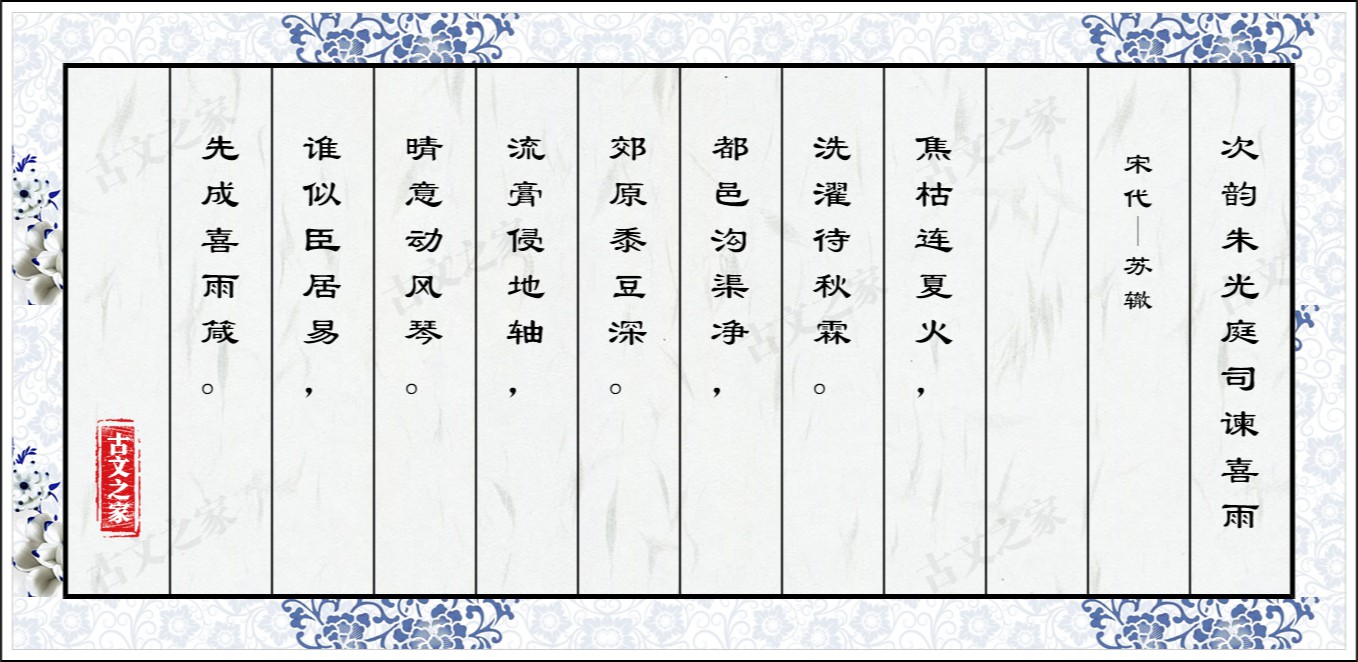 次韵朱光庭司谏喜雨
宋代—苏辙
焦枯连夏火，
洗濯待秋霖。
都邑沟渠净，
郊原黍豆深。
流膏侵地轴，
晴意动风琴。
谁似臣居易，
先成喜雨箴。
古文之家